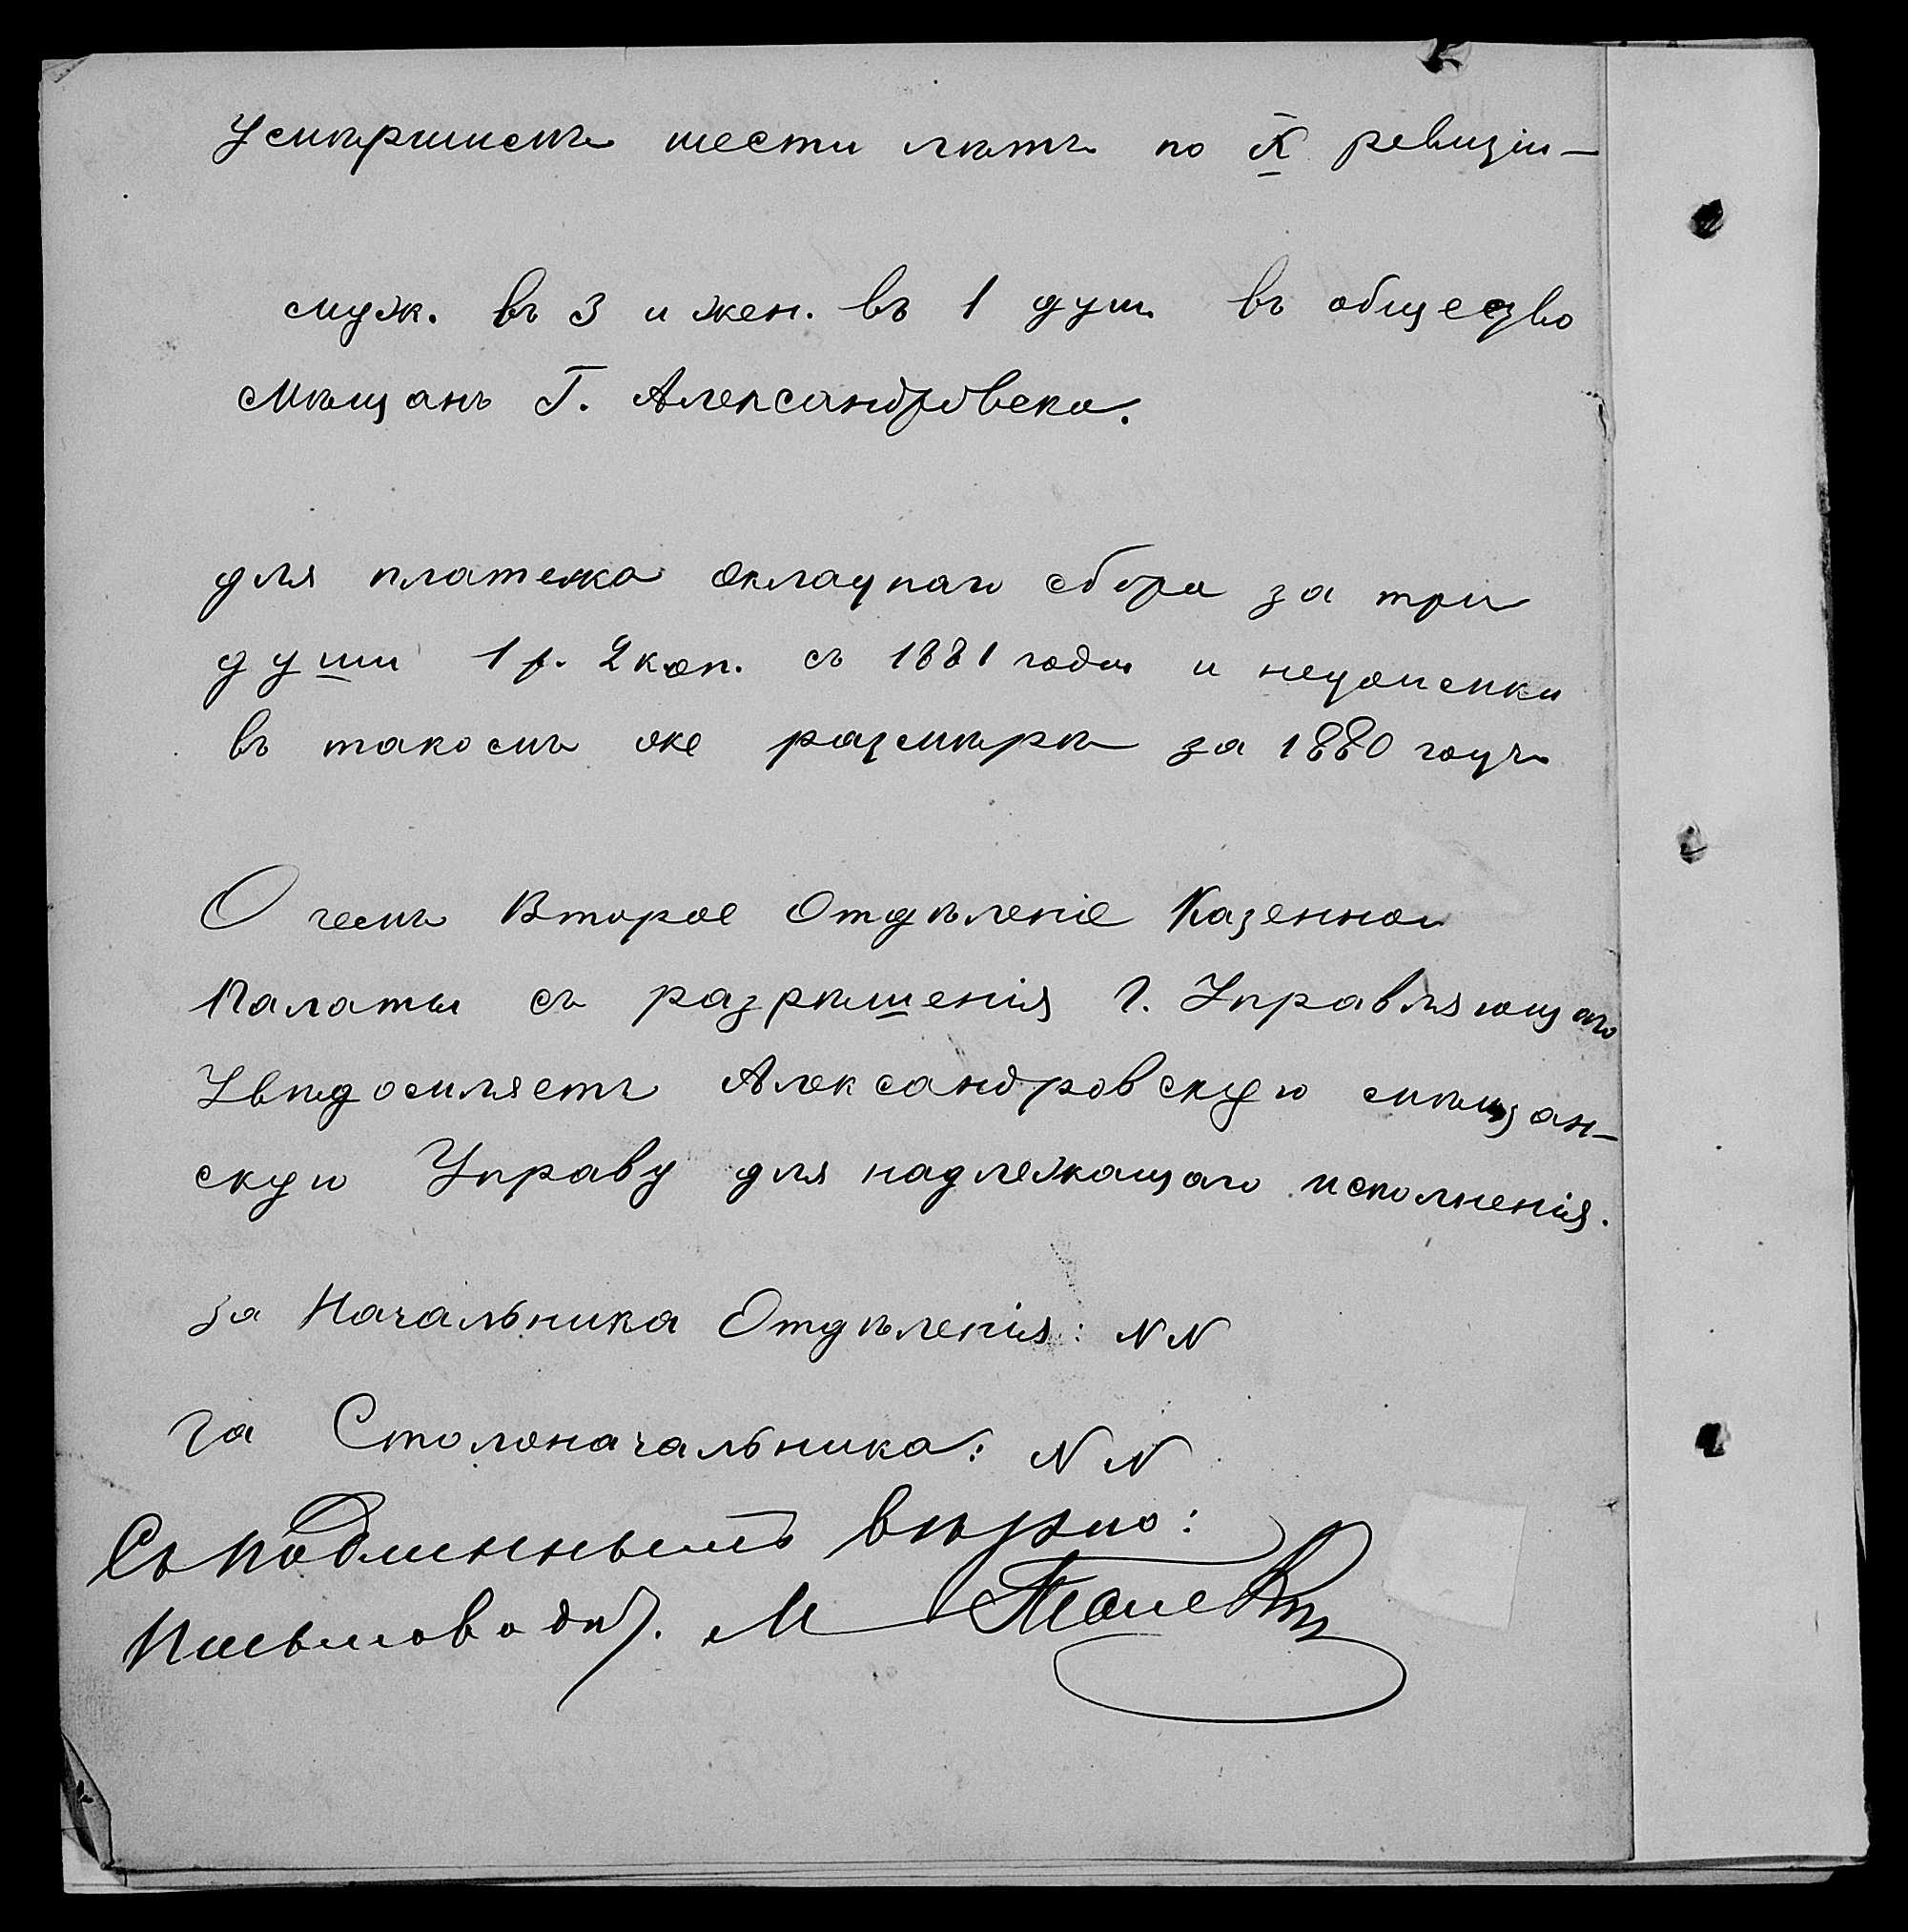 Умершимъ шести лѣтъ по X ревизіи —
муж. въ 3 и жен. въ 1 душ въ общество
мѣщанъ Г. Александровска.
для платежа окладнаго сбора за три
души 1 р. 2 коп. съ 1881 года и недоимки
въ такомъ же размѣрѣ за 1880 годъ
О чемъ Второе Отдѣленіе Казенной
Палаты съ разрѣшенія Г. Управляющаго
Увѣдомляетъ Александровскую мѣщан-
скую Управу для надлежащаго исполненія.
за Начальника Отдѣленія: NN
за Столоначальника: NN
Съ подлиннымъ вѣрно:
Письмовод. М